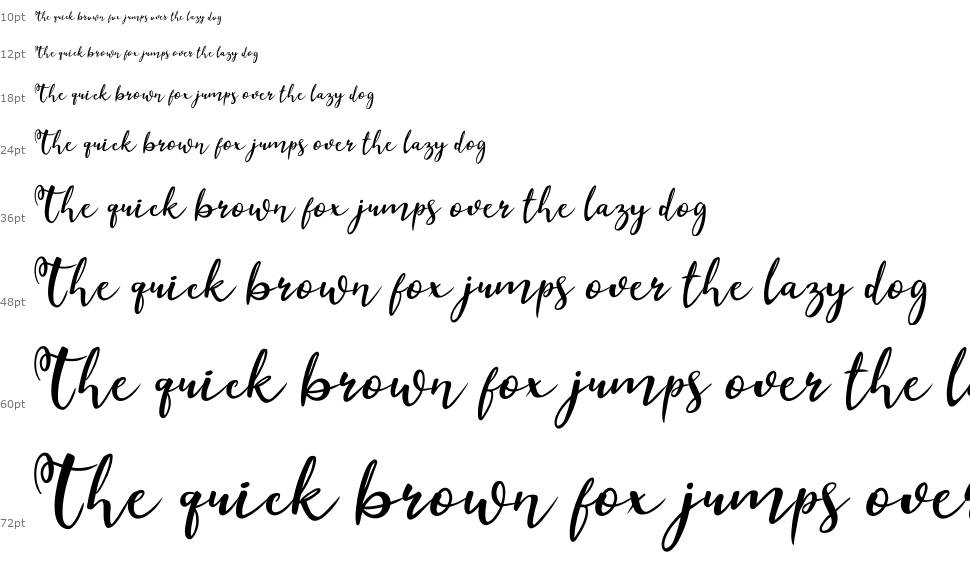 10pt The quick brown fox jumps over the lazy dog
12pt The quick brown fox jumps over the lazy dog
18pt The quick brown fox jumps over the lazy dog
24pt The quick brown fox jumps over the lazy dog
36pt The quick brown fox jumps over the lazy dog
48pt The quick brown fox jumps over the lazy dog
60pt The quick brown fox jumps over the la
72pt The quick brown fox jumps over